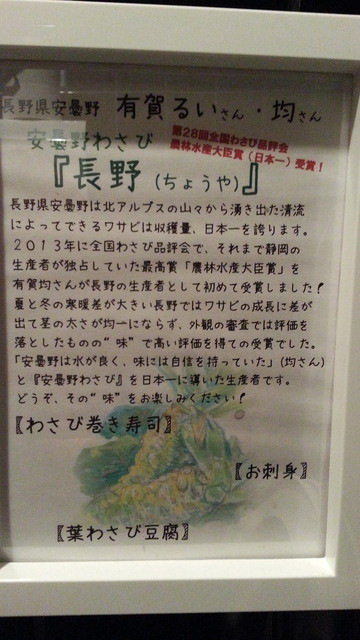 長野県安曇野 有賀るいさん・均さん
安曇野わさび
第28回全国わさび品評会
農林水産大臣賞(日本一)受賞!
『長野(ちょうや)』
長野県安曇野は北アルプスの山々から湧き出た清流
によってできるワサビは収穫量、日本一を誇ります。
2013年に全国わさび品評会で、それまで静岡の
生産者が独占していた最高賞「農林水産大臣賞」を
有賀均さんが長野の生産者として初めて受賞しました!
夏と冬の寒暖差が大きい長野ではワサビの成長に差が
出て茎の太さが均一にならず、外観の審査では評価を
落としたものの“味”で高い評価を得ての受賞でした。
「安曇野は水が良く、味には自信を持っていた」(均さん)
と『安曇野わさび』を日本一に導いた生産者です。
どうぞ、その“味”をお楽しみください!
〖わさび巻き寿司〗
〖お刺身〗
〖葉わさび豆腐〗